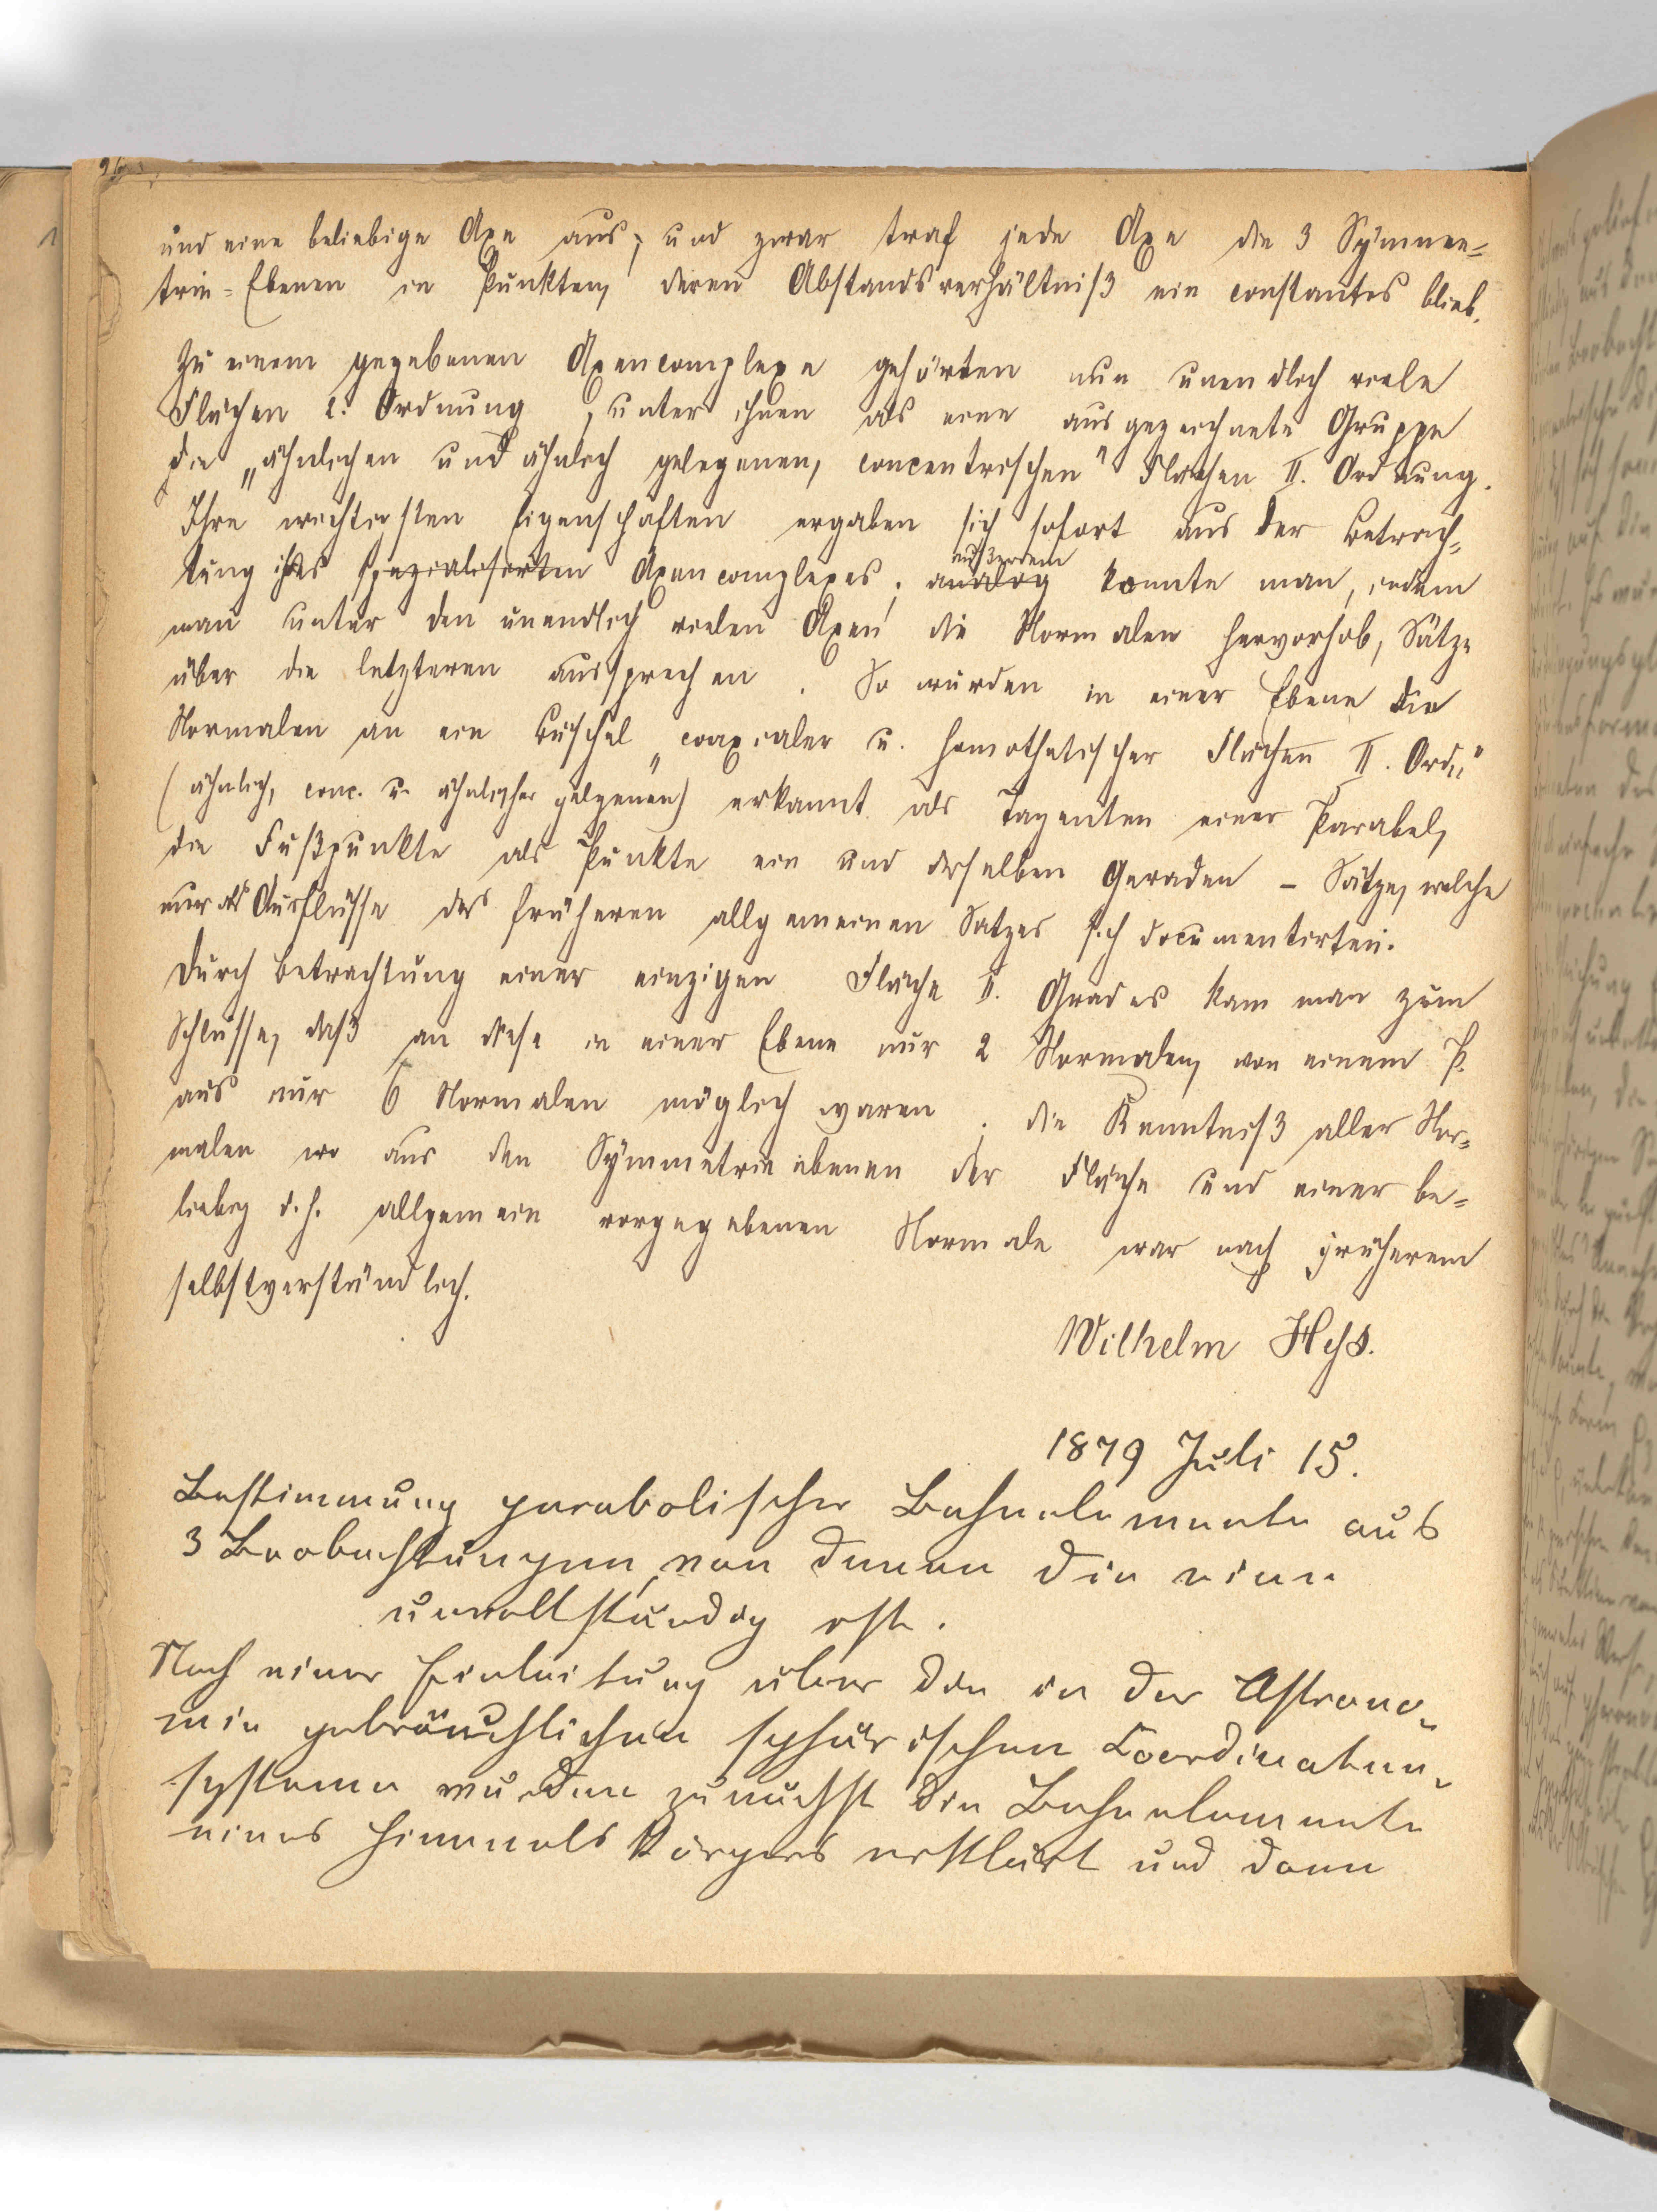 und eine beliebige Axe aus; und zwar traf jede Axe die 3 Symme=
trie=Ebenen in Punkten, deren Abstandsverhältniß ein constantes blieb.
Zu einem gegebenen Axencomplexe gehörten nun unendlich viele
Flächen 2. Ordnung, unter ihnen als eine ausgezeichnete Gruppe
die „ähnlichen und ähnlich gelegenen, concentrischen" Flächen II. Ordnung.
Ihre wichtigsten Eigenschaften ergaben sich sofort aus der Betrach=
tung ihres spezialisirten Axencomplexes; analog außerdem konnte man, indem
man unter den unendlich vielen Axen die Normalen hervorhob, Sätze
über die letzteren aussprechen. So wurden in einer Ebene die
Normalen an ein Büschel „coaxialer u. homothetischer Flächen II. Ord."
(ähnlich, conc. u. ähnlicher gelegenen) erkannt als Tagenten einer Parabel,
die Fußpunkte als Punkte ein und derselben Geraden – Sätze, welche
nur als Ausflüsse des früheren allgemeinen Satzes sich documentirten.
Durch Betrachtung einer einzigen Fläche II. Grades kam man zum
Schlusse, daß an diese in einer Ebene nur 2 Normalen, von einem P.
aus nur 6 Normalen möglich waren; die Kenntniß aller Nor=
malen aus den Symmetrieebenen der Fläche und einer be=
liebig d.h. allgemein vorgegebenen Normale war nach früherem
selbstverständlich.
Wilhelm Heß.
1879 Juli 15.
Bestimmung parabolischer Bahnelemente aus
3 Beobachtungen, von denen die eine
unvollständig ist.
Nach einer Einleitung über die in der Astrono=
mie gebräuchlichen sphärischen Coordinaten=
systeme wurden zunächst die Bahnelemente
eines Himmelskörpers erklärt und dann